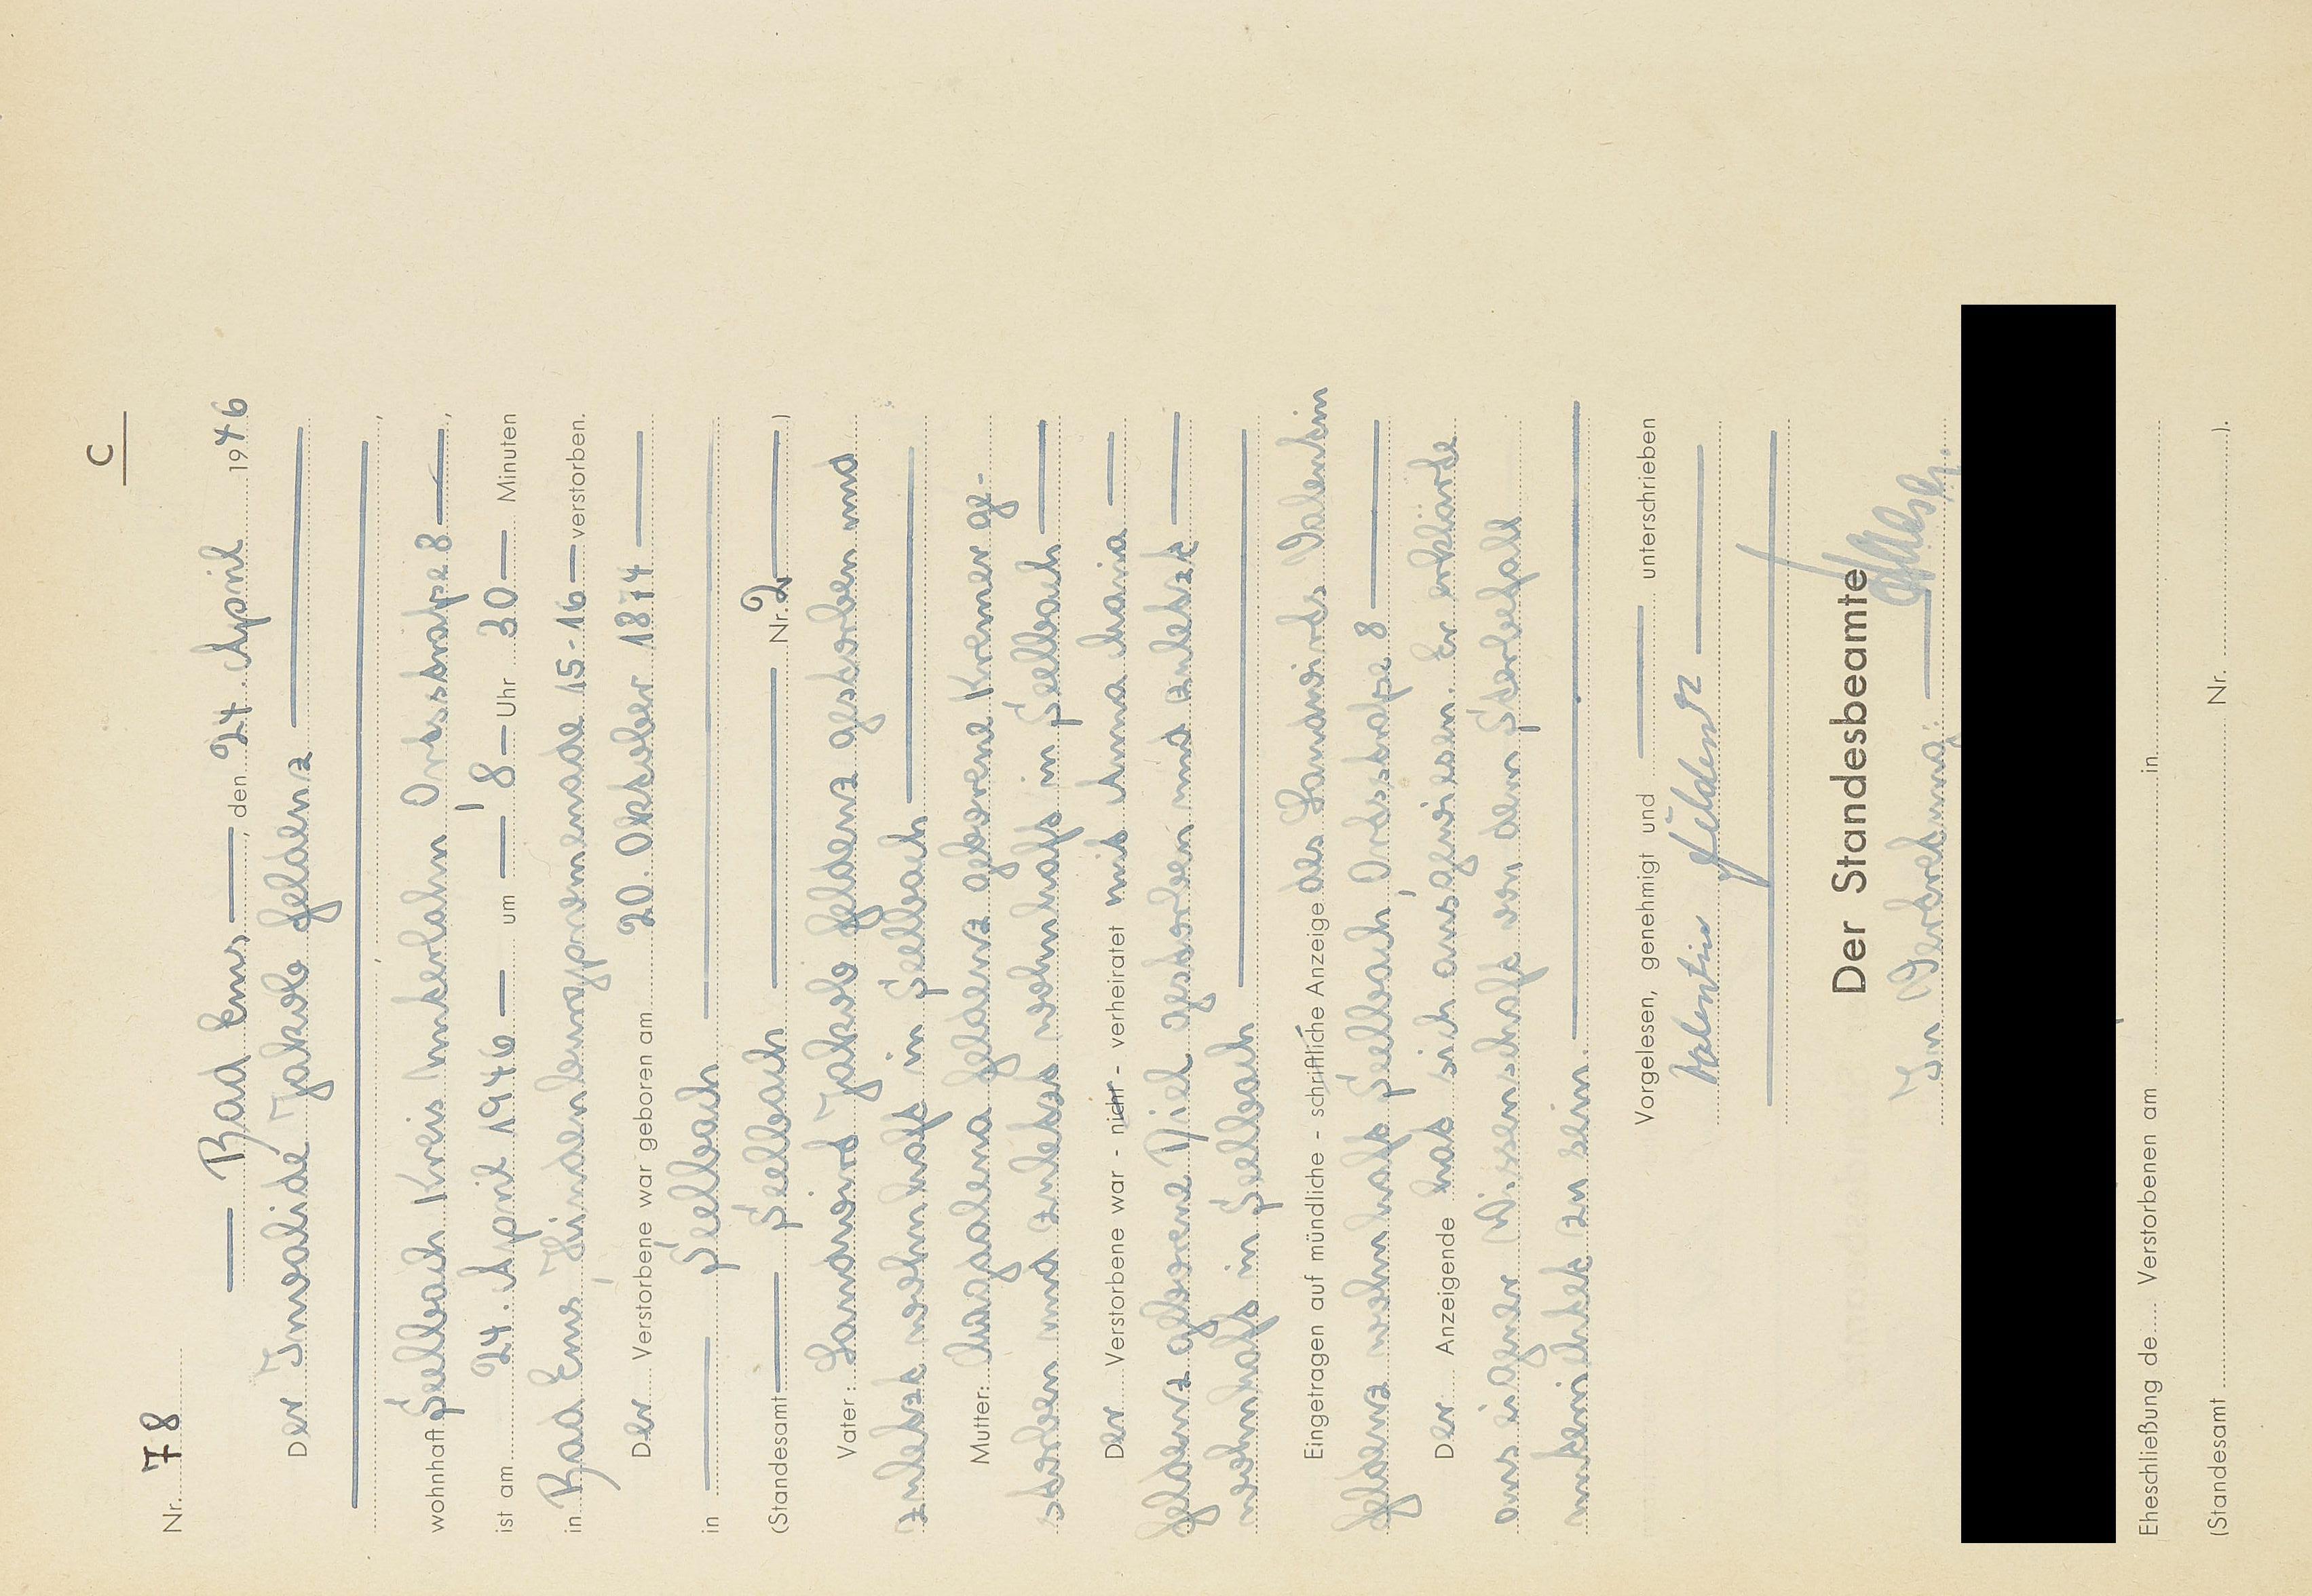 C
Nr. 78
Bad Ems, den 24. April 1946
Der Invalide Jakob Feldenz
wohnhaft Seelbach Kreis Unterlahn Ortsstraße 8,
ist am 24. April 1946 um 8 Uhr 30 Minuten
in Bad Ems, Hindenburgpromenade 15-16 verstorben.
Der Verstorbene war geboren am 20. Oktober 1874
in Seelbach
(Standesamt Seelbach Nr. 2)
Vater: Landwirt Jakob Feldenz gestorben und
zuletzt wohnhaft in Seelbach
Mutter: Magdalena Feldenz geborene Kremer ge-
storben und zuletzt wohnhaft in Seelbach
Der Verstorbene war - nicht - verheiratet mit Anna Maria
Feldenz geborene Diel gestorben und zuletzt
wohnhaft in Seelbach
Eingetragen auf mündliche - schriftliche Anzeige des Landwirts Valentin
Feldenz wohnhaft Seelbach, Ortsstraße 8
Der Anzeigende hat sich ausgewiesen. Er erklärte
aus eigener Wissenschaft von dem Sterbefall
unterrichtet zu sein.
Vorgelesen, genehmigt und unterschrieben
Valentin Feldenz
Der Standesbeamte
In Vertretung:
Eheschließung de Verstorbenen am in
(Standesamt Nr. ).